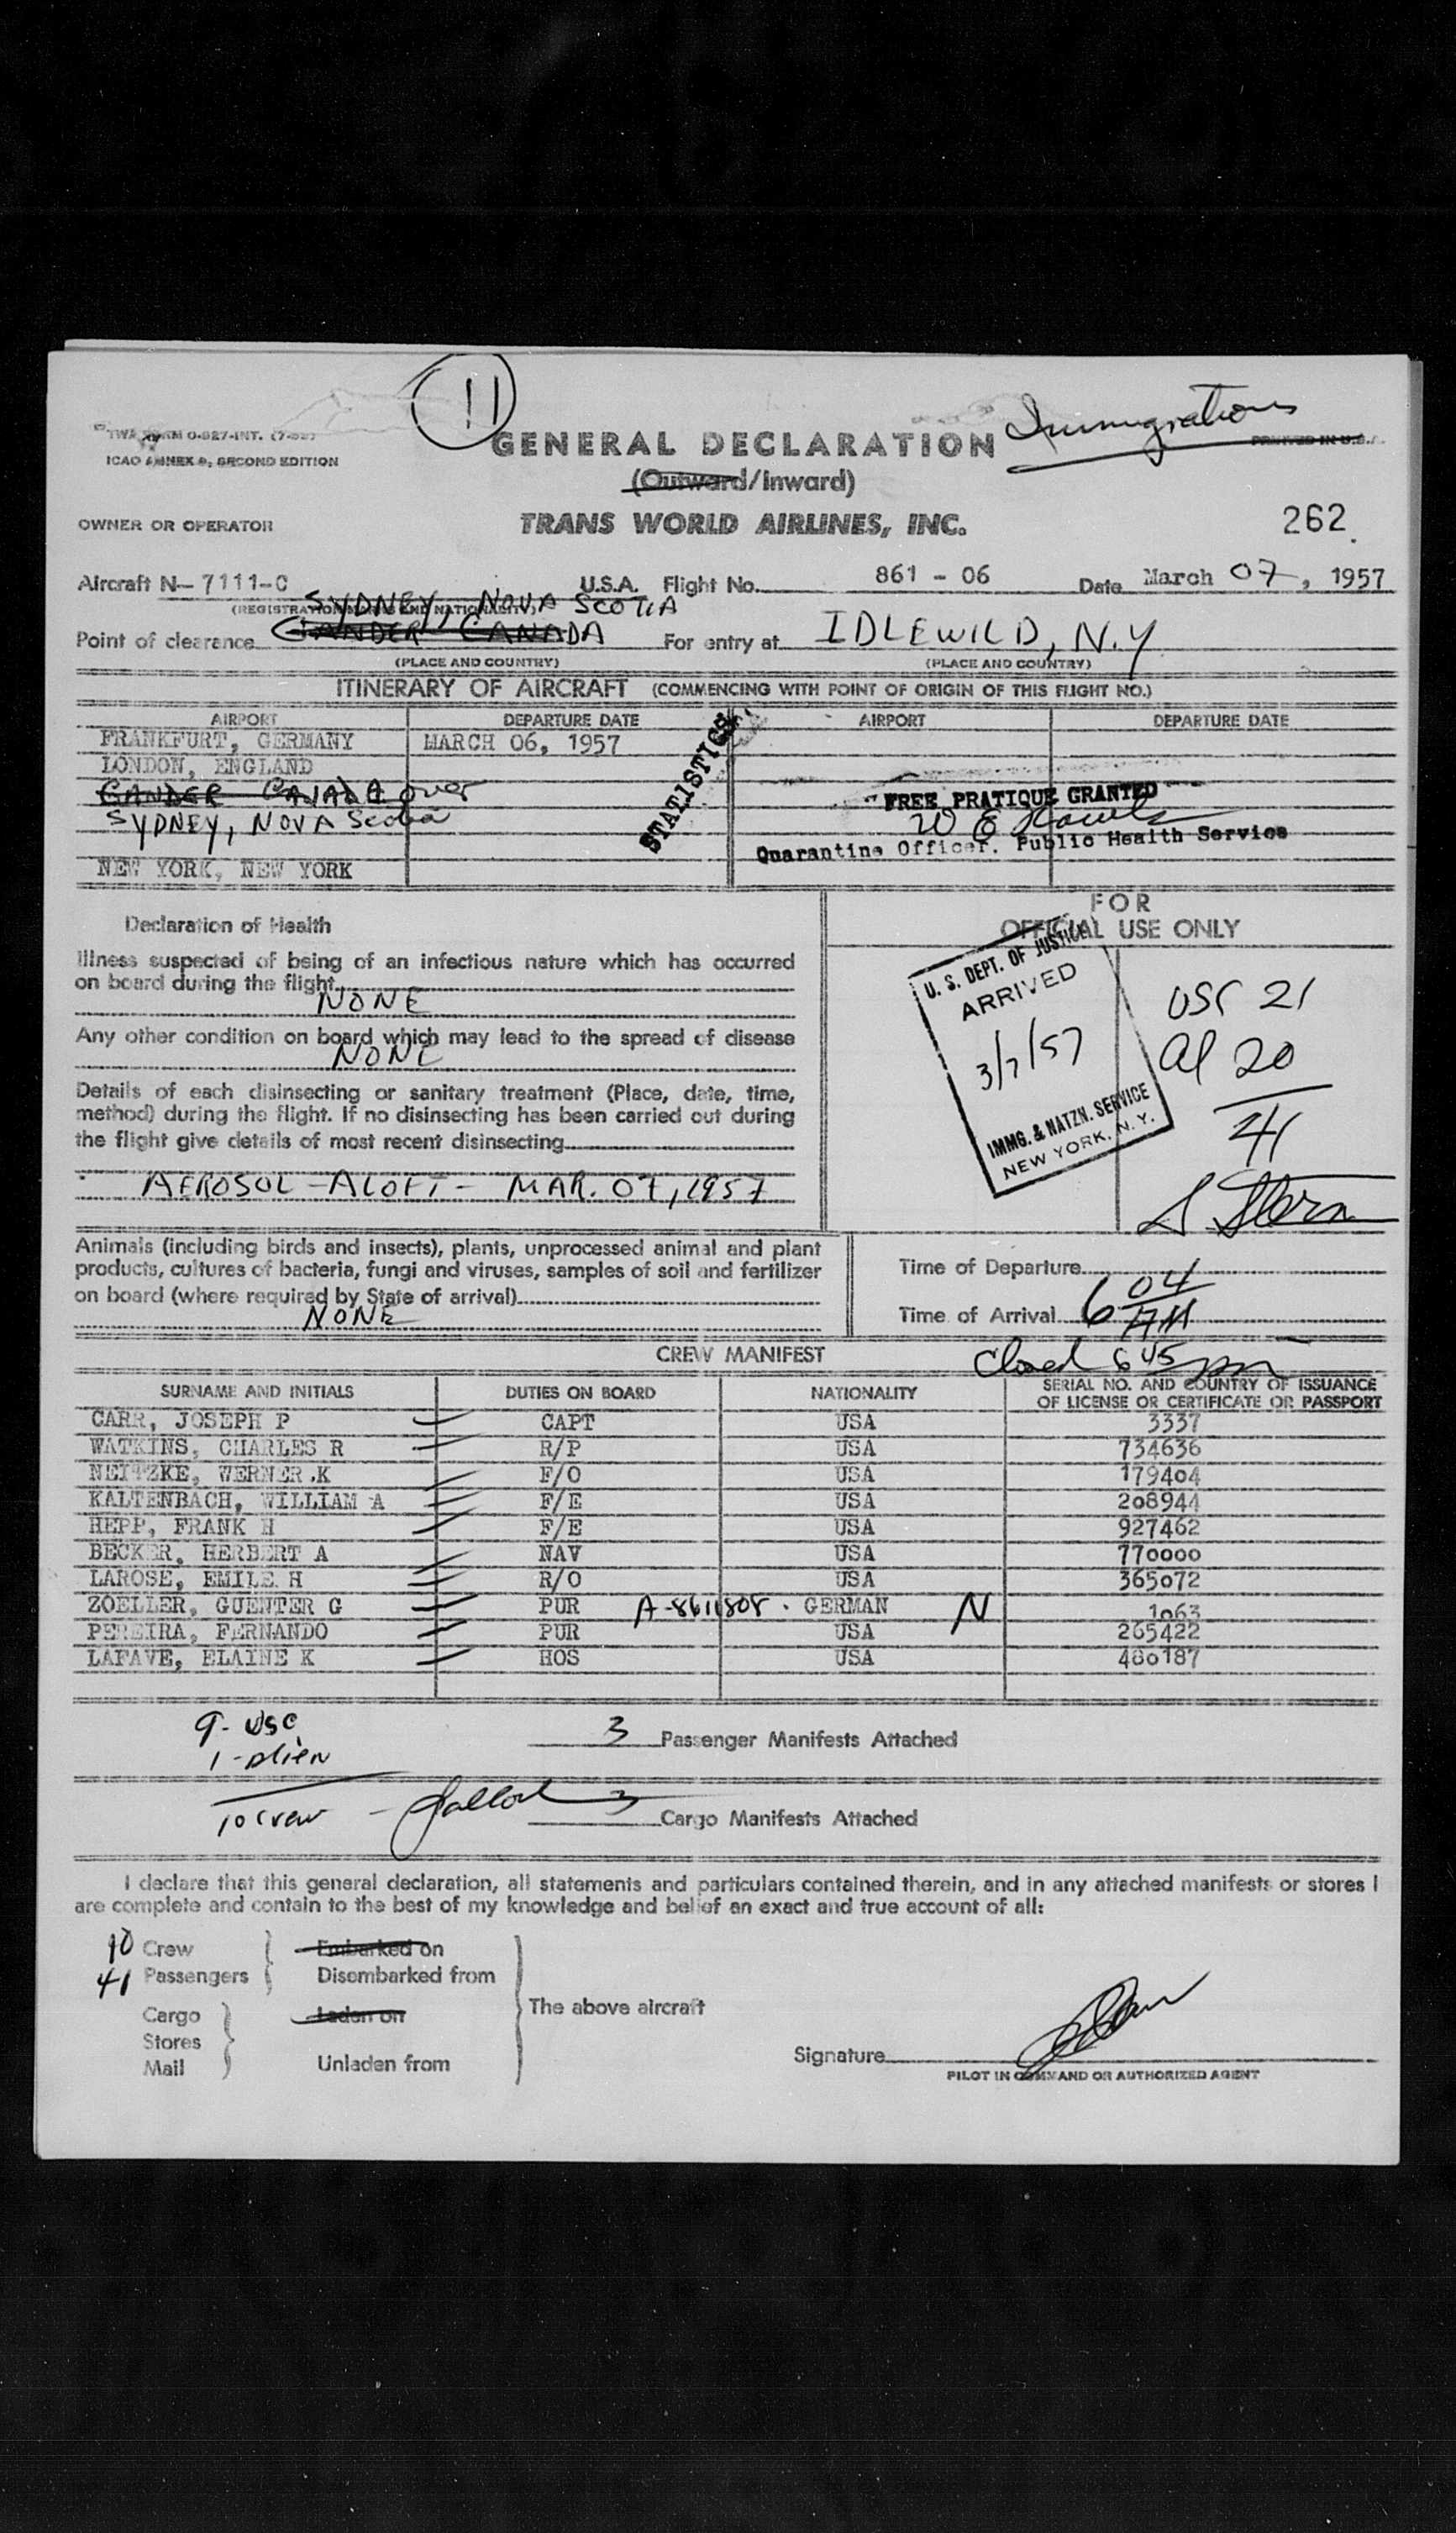 11
Immigration
TWA FORM O-827-INT.
PRINTED IN U.S.A.
GENERAL DECLARATION
ICAO ANNEX 9, SECOND EDITION
(Outward/Inward)
OWNER OR OPERATOR TRANS WORLD AIRLINES, INC. 262
Aircraft N— 7111-C U.S.A. Flight No. 861 - 06 Date March 07, 1957
(REGISTRATION MARKS AND NATIONALITY)
SYDNEY, NOVA SCOTIA
Point of clearance GANDER CANADA For entry at IDLEWILD, N.Y
(PLACE AND COUNTRY) (PLACE AND COUNTRY)
ITINERARY OF AIRCRAFT (COMMENCING WITH POINT OF ORIGIN OF THIS FLIGHT NO.)
AIRPORT DEPARTURE DATE AIRPORT DEPARTURE DATE
FRANKFURT, GERMANY MARCH 06, 1957
LONDON, ENGLAND
GANDER CANADA over
SYDNEY, NOVA Scotia
NEW YORK, NEW YORK
STATISTICS
FREE PRATIQUE GRANTED
W E
Quarantine Officer. Public Health Service
Declaration of Health
Illness suspected of being of an infectious nature which has occurred
on board during the flight
NONE
Any other condition on board which may lead to the spread of disease
NONE
Details of each disinsecting or sanitary treatment (Place, date, time,
method) during the flight. If no disinsecting has been carried out during
the flight give details of most recent disinsecting
AEROSOL - ALOFT - MAR. 07, 1957
FOR
OFFICIAL USE ONLY
U. S. DEPT. OF JUSTICE
ARRIVED
3/7/57
IMMG. & NATZN. SERVICE
NEW YORK, N. Y.
USC 21
al 20
41
S. Stern
Animals (including birds and insects), plants, unprocessed animal and plant
products, cultures of bacteria, fungi and viruses, samples of soil and fertilizer
on board (where required by State of arrival)
NONE
Time of Departure
Time of Arrival 6 04 AM
CREW MANIFEST
Closed 645
SURNAME AND INITIALS DUTIES ON BOARD NATIONALITY SERIAL NO. AND COUNTRY OF ISSUANCE
OF LICENSE OR CERTIFICATE OR PASSPORT
CARR, JOSEPH P CAPT USA 3337
WATKINS, CHARLES R R/P USA 734636
NEITZKE, WERNER .K F/O USA 179404
KALTENBACH, WILLIAM A F/E USA 208944
HEPP, FRANK H F/E USA 927462
BECKER, HERBERT A NAV USA 770000
LAROSE, EMILE H R/O USA 365072
ZOELLER, GUENTER G PUR A-8611808 . GERMAN N 1063
PEREIRA, FERNANDO PUR USA 265422
LAFAVE, ELAINE K HOS USA 480187
9 - USC
1 - Alien
10 Crew -
3 Passenger Manifests Attached
3 Cargo Manifests Attached
I declare that this general declaration, all statements and particulars contained therein, and in any attached manifests or stores I
are complete and contain to the best of my knowledge and belief an exact and true account of all:
10 Crew Embarked on
41 Passengers Disembarked from
The above aircraft
Cargo Laden on
Stores
Mail Unladen from
Signature
PILOT IN COMMAND OR AUTHORIZED AGENT